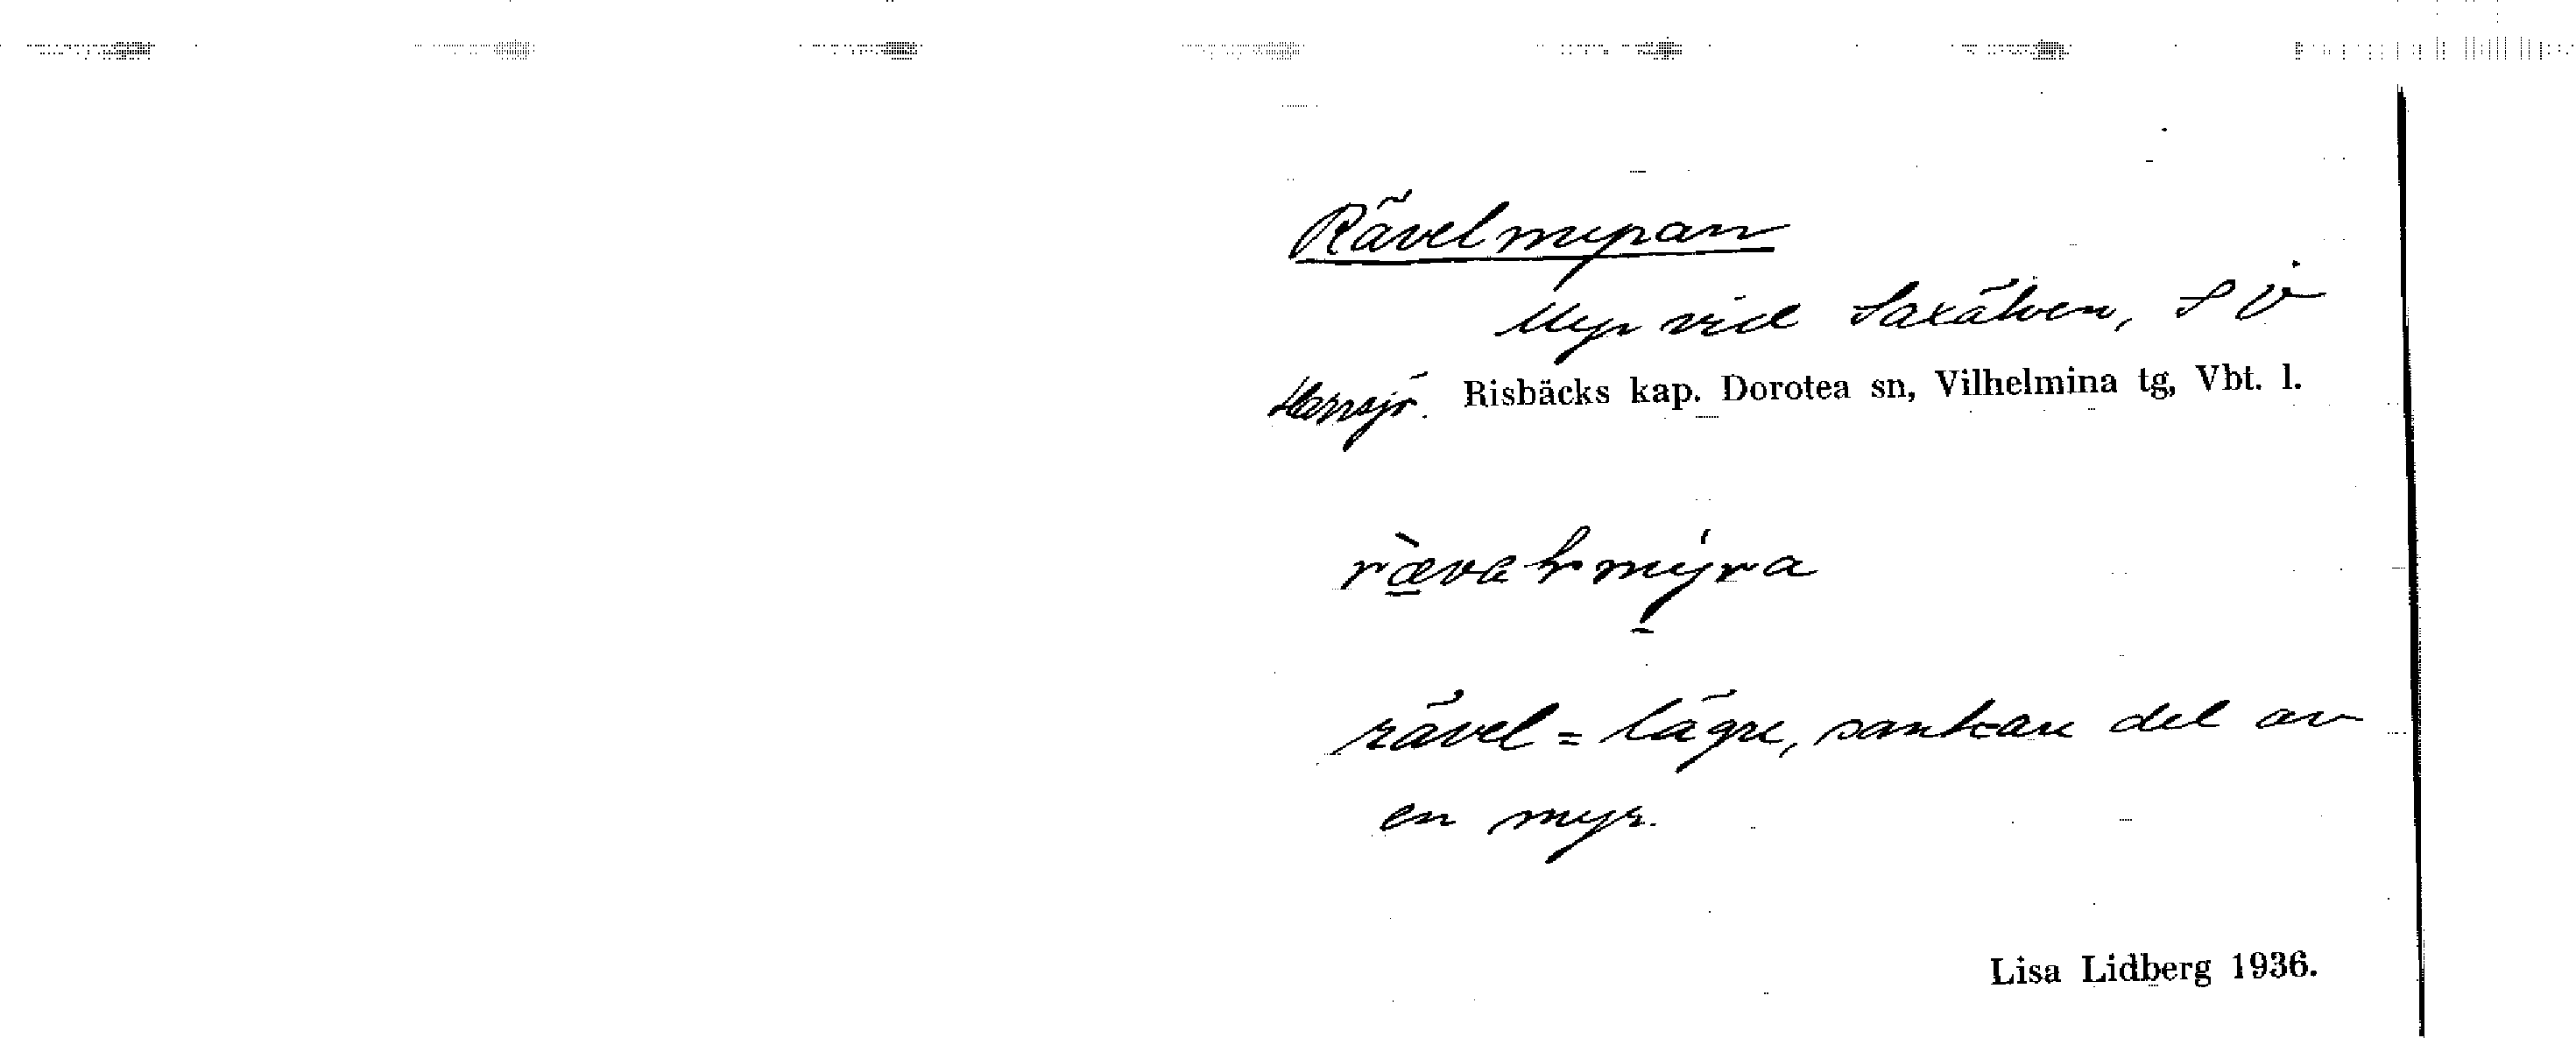 Rävelmyran
Myr vid Saxälven, SV
Risbäcks kap. Dorotea sn, Vilhelmina tg, Vbt. l.
rävel = lägre, sankare del av
en myr.
Lisa Lidberg 1936.